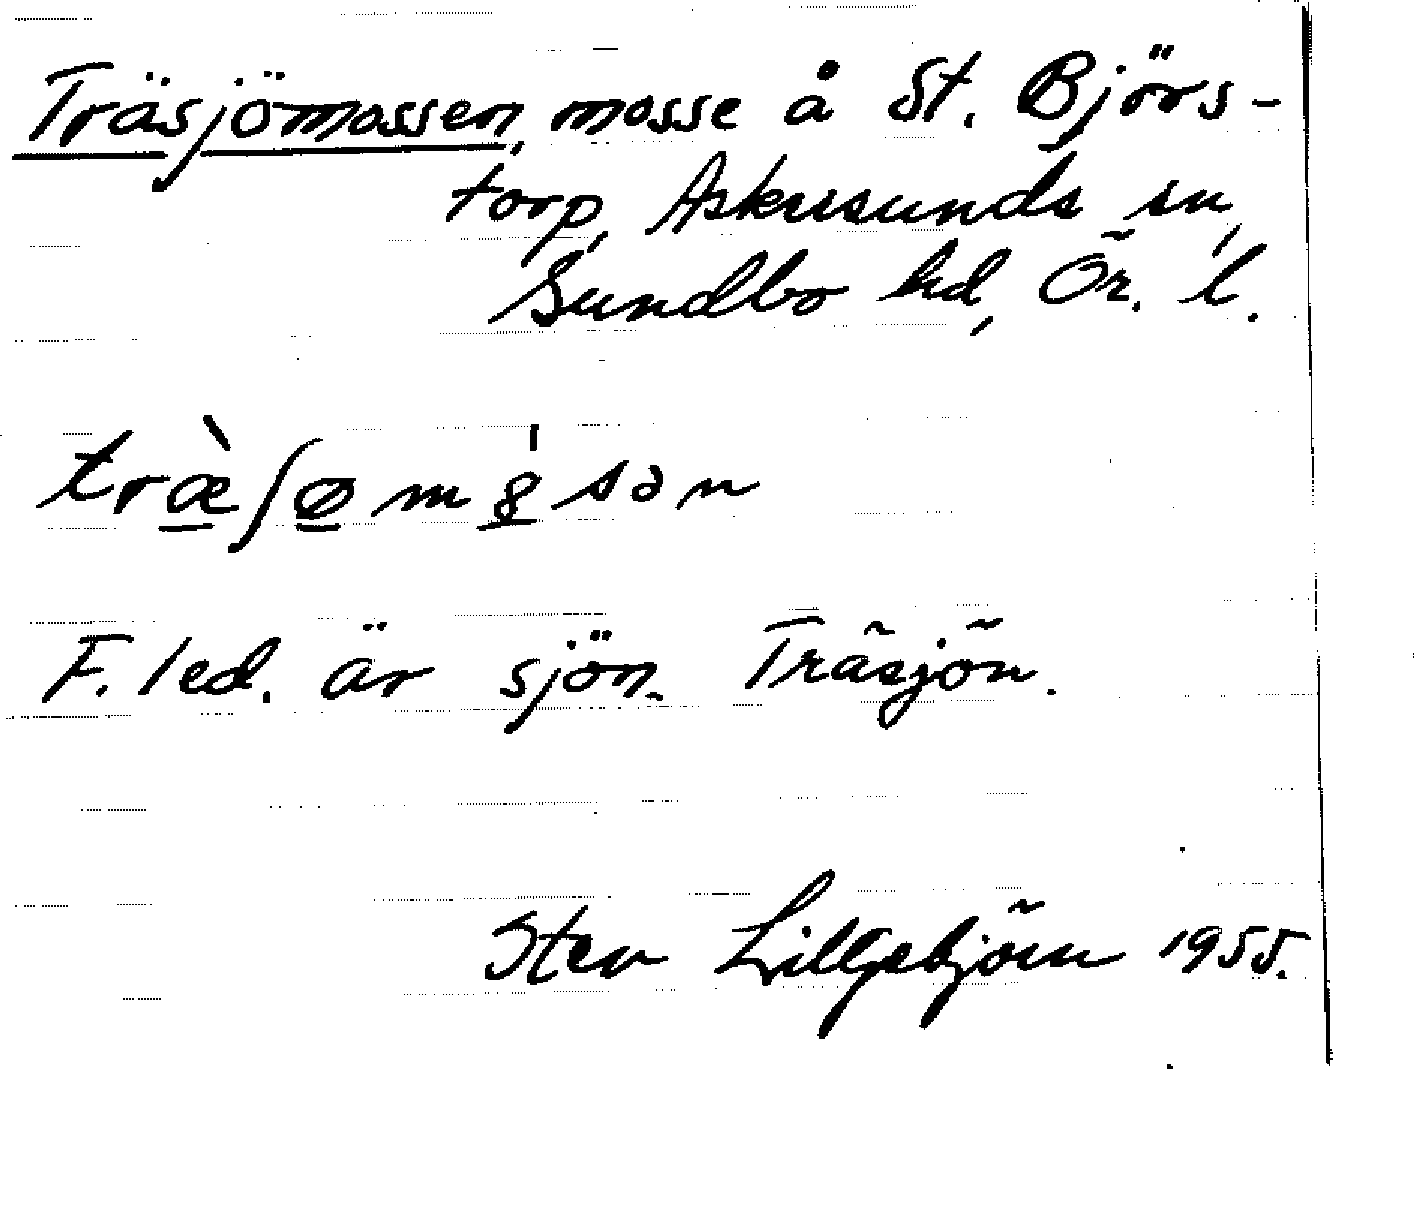 Träsjömossen, mosse å St. Björs-
torp, Askersunds sn,
Sundbo hd, Ör. l.
træ̀ʃøm8̍sən
F. led. är sjön Träsjön.
Sten Lillgebjörn 1955.